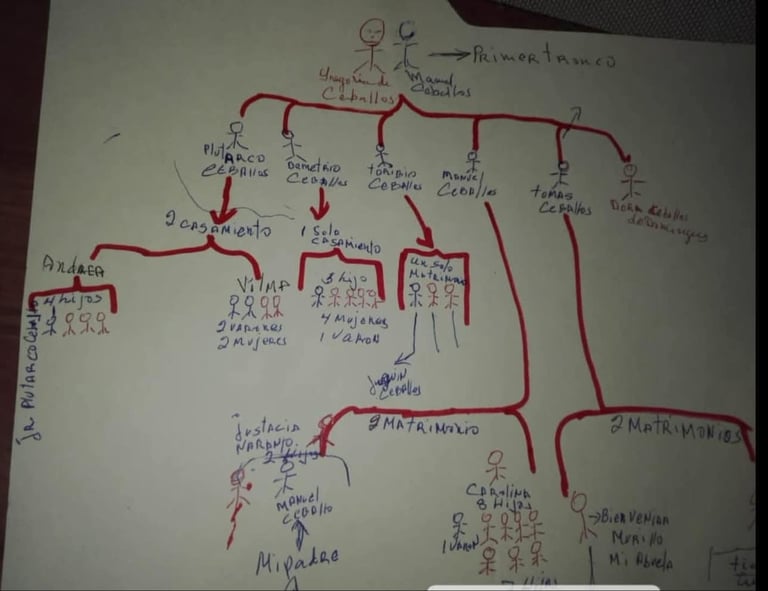 Primer tronco
Gregoria de
Ceballos
Manuel
Ceballos
PlutARCO
CEBAllos
Demetrio
CEBAllos
toribio
CEBAllos
MANUEl
CEBAllos
tomAs
CEBAllos
Dora Ceballos
de Dominguez
2 CASAMiento
1 Solo
CASAMiento
un Solo
Matrimonio
AndREA
4 hijos
JR PlutARCO Ceballos
VilMA
2 VARones
2 Mujeres
5 hijo
4 Mujeres
1 VARon
CEBAllos
2 MATRiMONiO
2 MATRIMONIOS
justacia
NARANJO
2 Hijos
MANUEl
CEBAllo
Mi padre
CAROlinA
8 Hijos
1 VARON
Murillo
Mi Abuela